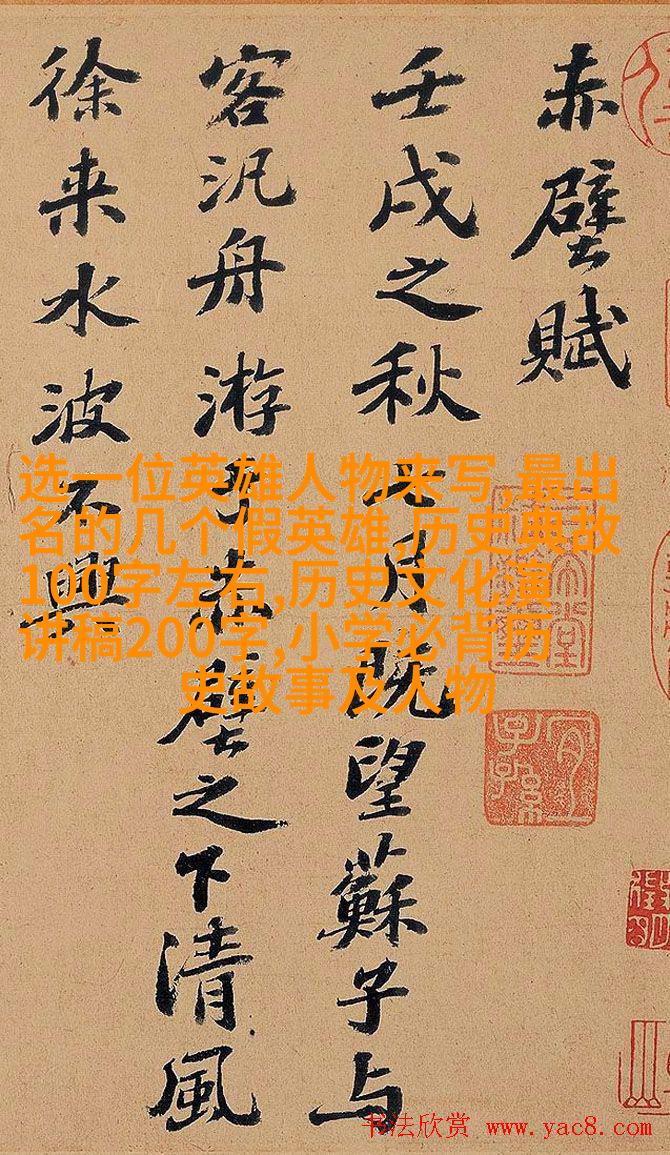 赤壁賦
壬戌之秋七月既望蘇子与
客汎舟游于赤壁之下清風
徐来水波不興
选一位英雄人物来写,最出
名的几个假英雄,历史典故
100字左右,历史文化演
讲稿200字,小学必背历
史故事及人物
书法欣赏 www.yac8.com